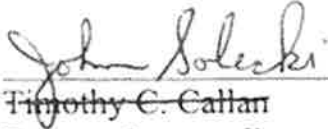 John Solecki
Timothy C. Callan